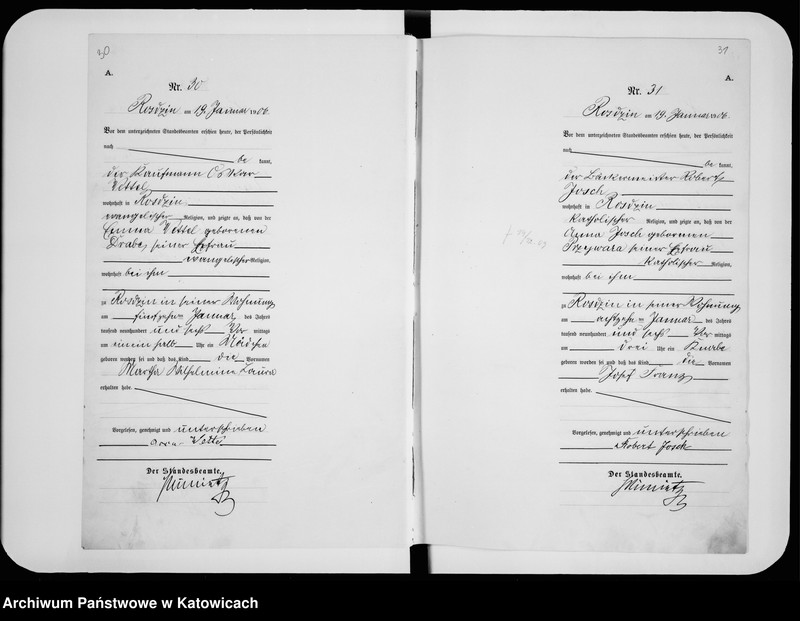 30
A.
Nr. 30
Rosdzin am 19. Januar 1906.
Vor dem unterzeichneten Standesbeamten erschien heute, der Persönlichkeit
nach
be kannt,
der Kaufmann Oskar
Vettel
wohnhaft in Rosdzin
evangelischer Religion, und zeigte an, daß von der
Emma Vettel geborenen
Drabe, seiner Ehefrau
evangelischer Religion,
wohnhaft bei ihm
zu Rosdzin in seiner Wohnung
am fünfzehn ten Januar des Jahres
tausend neunhundert und sechs Vor mittags
um ein ein halb Uhr ein Mädchen
geboren worden sei und daß das Kind die Vornamen
Martha Wilhelmine Laura
erhalten habe.
Vorgelesen, genehmigt und unterschrieben
Der Standesbeamte.
31
A.
Nr. 31
Rosdzin am 19. Januar 1906.
Vor dem unterzeichneten Standesbeamten erschien heute, der Persönlichkeit
nach
be kannt,
der Bäckermeister Robert
Josch
wohnhaft in Rosdzin
katholischer Religion, und zeigte an, daß von der
Anna Josch geborenen
Przywara seiner Ehefrau
katholischer Religion,
wohnhaft bei ihm
zu Rosdzin in seiner Wohnung
am achtzehn ten Januar des Jahres
tausend neunhundert und sechs Vor mittags
um drei Uhr ein Knabe
geboren worden sei und daß das Kind die Vornamen
Josef Franz
erhalten habe.
Vorgelesen, genehmigt und unterschrieben
Robert Josch
Der Standesbeamte.
Archiwum Państwowe w Katowicach